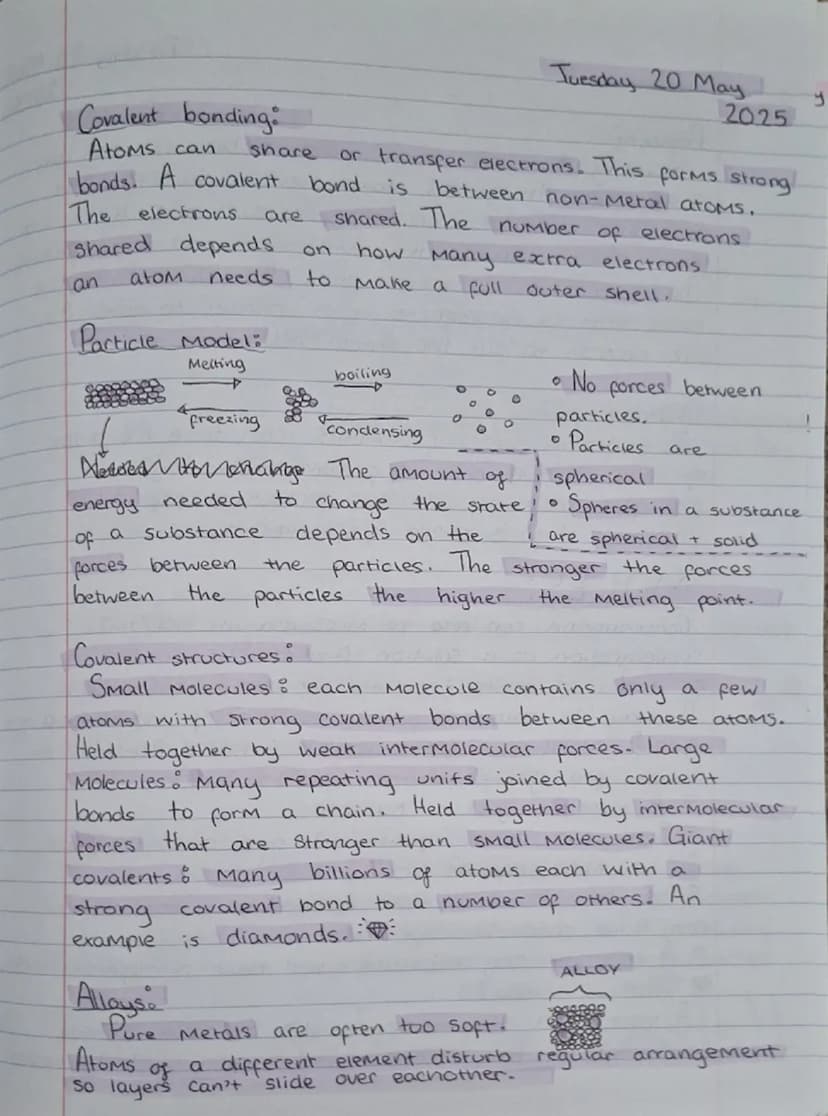 Tuesday 20 May
2025
Covalent bonding:
Atoms can share or transfer electrons. This forms strong
bonds. A covalent bond is between non-metal atoms.
The electrons are shared. The number of electrons
shared depends on how many extra electrons
an atom needs to make a full outer shell.
Particle Model:
Melting
freezing
boiling
condensing
• No forces between
particles.
• Particles are
spherical
• Spheres in a substance
are spherical + solid
The amount of
energy needed to change the state
of a substance depends on the
forces between the particles. The stronger the forces
between the particles the higher the melting point.
Covalent structures:
Small Molecules: each molecule contains only a few
atoms with strong covalent bonds between these atoms.
Held together by weak intermolecular forces. Large
Molecules: Many repeating units joined by covalent
bonds to form a chain. Held together by intermolecular
forces that are stranger than small molecules. Giant
covalents: Many billions of atoms each with a
strong covalent bond to a number of others. An
example is diamonds.
Alloys:
ALLOY
Pure metals are often too soft.
Atoms of a different element disturb regular arrangement
so layers can't slide over eachother.